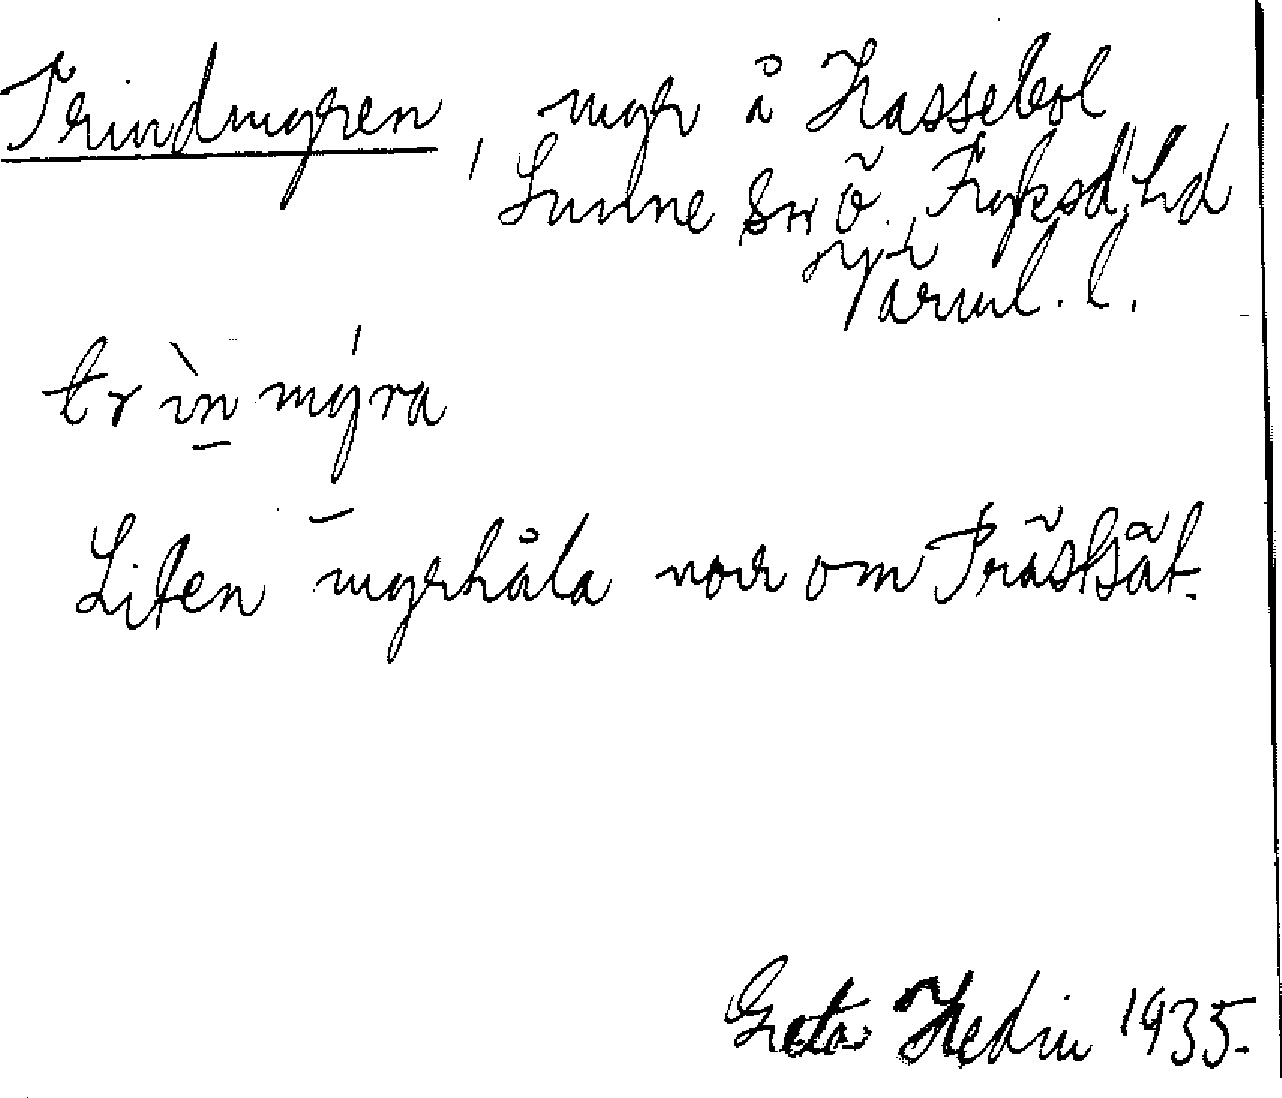 Trindmyren, myr å Hassebol,
Sunne sn Ö. Fryksd. hd
Värml. l.
trìn mýra
Liten myrhåla norr om Prästsät.
Greta Hedin 1935.